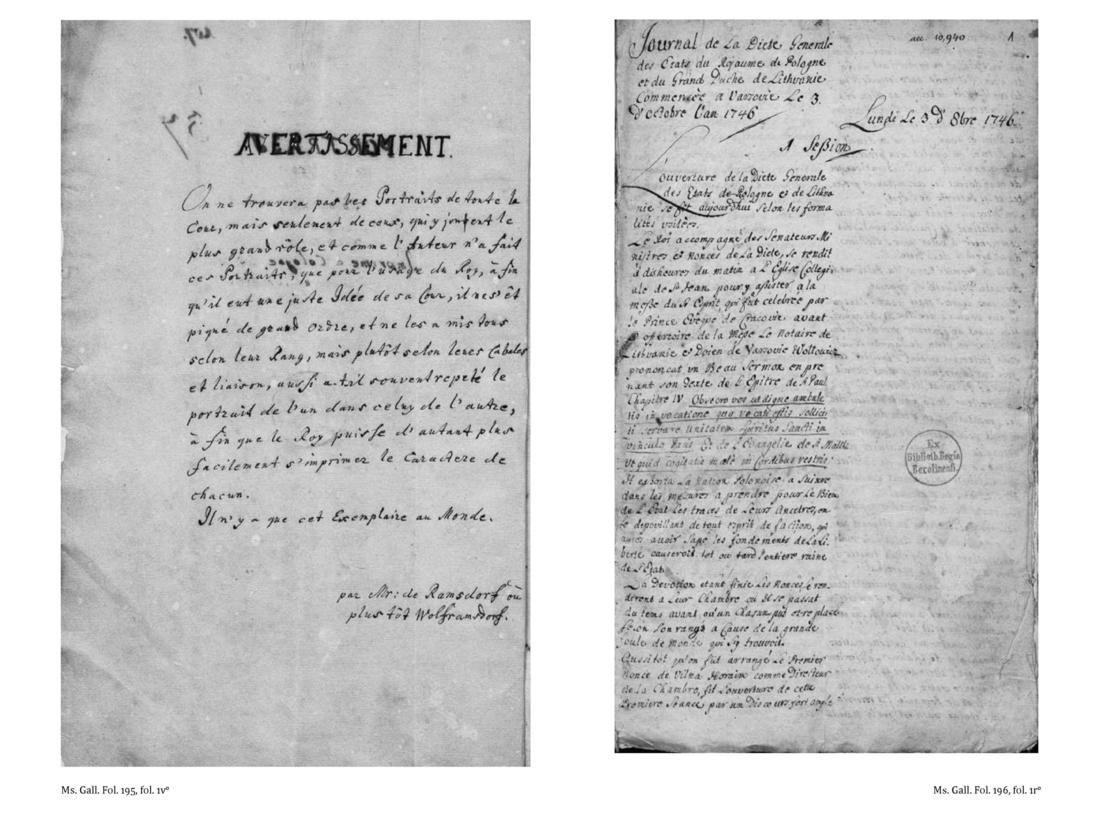 AVERTISSEMENT.
On ne trouvera pas les Portraits de toute la
Cour, mais seulement de ceux, qui y jouent le
plus grand rôle, et comme l'Auteur n'a fait
ces Portraits, que pour l'usage du Roy, à fin
qu'il eut une juste Idée de sa Cour, il nes'êt
piqué de grand ordre, et ne les a mis tous
selon leur Rang, mais plutôt selon leurs Cabales
et liaison, aussi a-t-il souvent repeté le
portrait de l'un dans celuy de l'autre,
à fin que le Roy puisse d'autant plus
facilement s'imprimer le Caractere de
chacun.
Il n'y a que cet Exemplaire au Monde.
par Mr: de Ramsdorf ou
plustôt Wolframsdorf.
Ms. Gall. Fol. 195, fol. 1vº
acc. 10,940
1
Journal de La Diete Generale
des Etats du Royaume de Pologne
et du Grand Duché de Lithvanie
Commencée a Varsovie Le 3.
d'octobre l'an 1746
Lundi Le 3 d' 8bre 1746.
1 Session
L'ouverture de la Diete Generale
des Etats de Pologne et de Lithva
nie se fit aujourd'hui selon les forma
lités usitées.
Le Roi acompagné des Senateurs Mi
nistres et Nonces de La Diete, se rendit
a dis heures du matin a L'Eglise Collegi
ale de St Jean pour y assister a la
messe du St Esprit, qui fut celebrée par
le Prince Eveque de Cracovie. avant
l'offertoire de la Messe Le Notaire de
Lithvanie et Doien de Varsovie
prononcat un Beau Sermon en pre
nant son Texte de L'Epitre de St Paul
Chapitre IV. Obsecro vos ut digne ambule
tis in vocatione qua vocati estis solliciti
servare unitatem Spiritus Sancti in
vinculo et de L'Evangelie de St Matth
ut quid cogitatis male in Cordibus vestris.
Il exhorta La Nation Polonoise a suivre
dans les mesures a prendre pour Le Bien
de L'Etat Les traces de Leurs Ancetres, en
se depouillant de tout esprit de faction, qui
apres avoir sapé les fondements de La Li
berté causeroit tot ou tard l'entiere ruine
de L'Etat.
La Devotion etant finie Les Nonces
dirent a Leur Chambre ou il se passat
du tems avant qu'un Chacun put etre placé
selon son rang a Cause de la grande
foule de monde qui s'y trouvoit.
Aussitot qu'on fut arrangé Le Premier
Nonce de Vilna Horain comme Directeur
de La Chambre, fit l'ouverture de cette
Premiere Seance par un Discours fort
Ex
Biblioth. Regia
Berolinensi.
Ms. Gall. Fol. 196, fol. 1rº